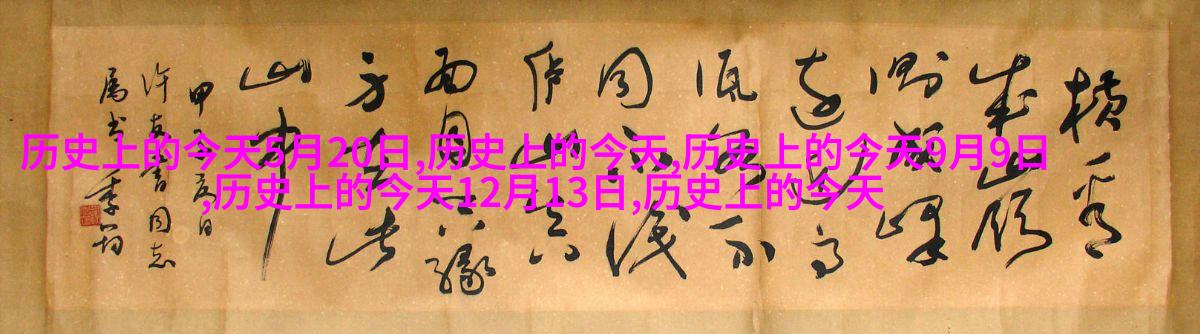 橫看
成嶺
側峰
远近高
低不
同不识
庐山真
面目只缘
身在此
山中
甲子夏日
许友同志
属书
历史上的今天5月20日,历史上的今天,历史上的今天9月9日
,历史上的今天12月13日,历史上的今天